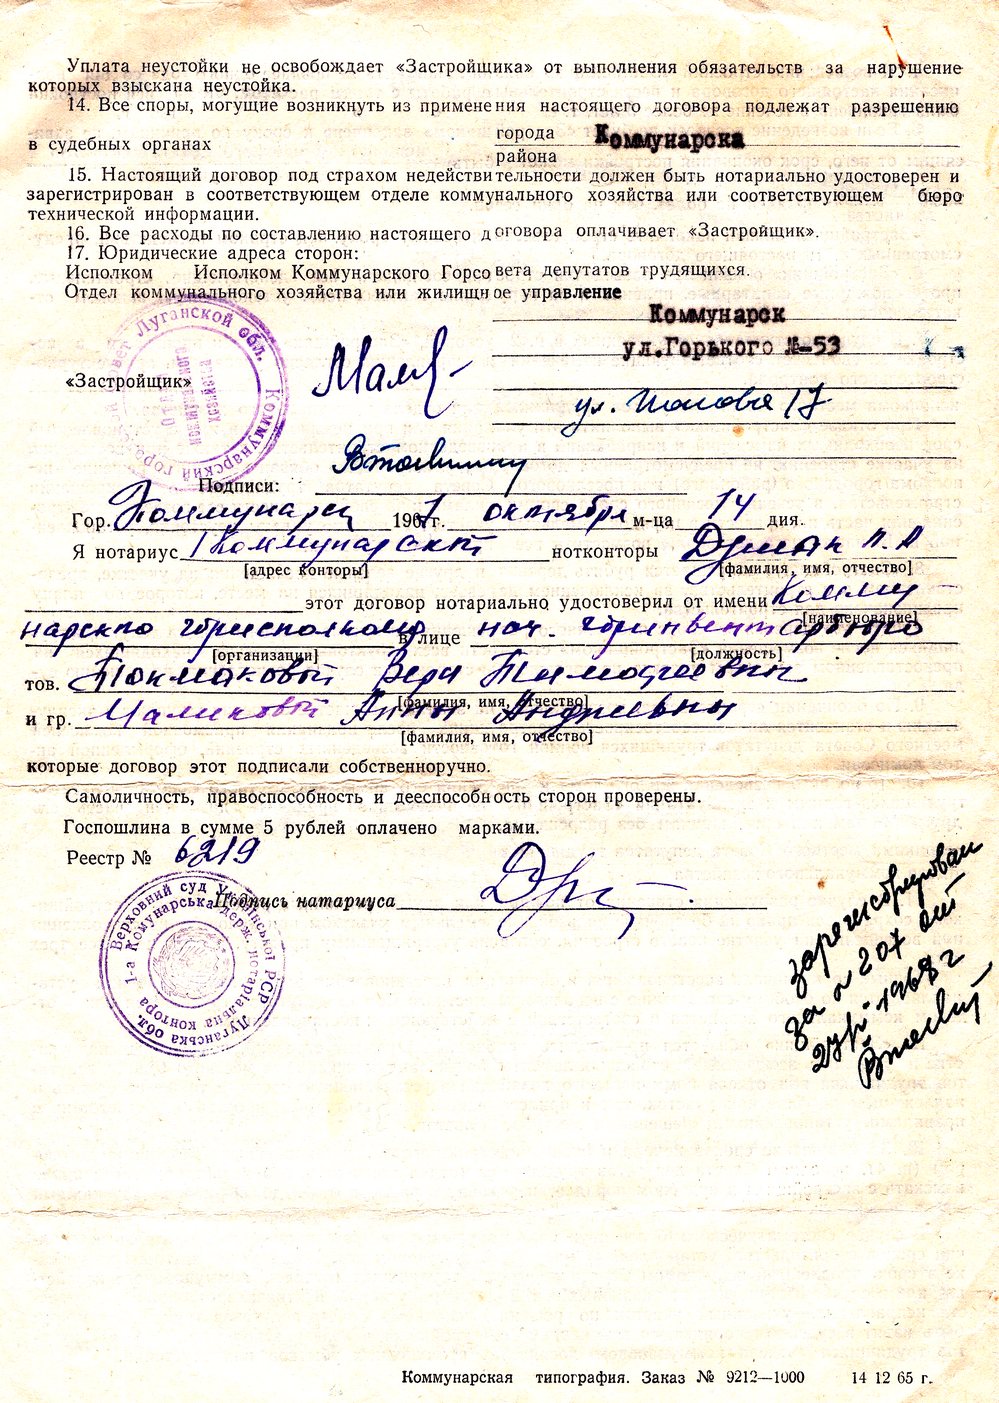 Уплата неустойки не освобождает «Застройщика» от выполнения обязательств за нарушение
которых взыскана неустойка.
14. Все споры, могущие возникнуть из применения настоящего договора подлежат разрешению
в судебных органах города Коммунарска
района
15. Настоящий договор под страхом недействительности должен быть нотариально удостоверен и
зарегистрирован в соответствующем отделе коммунального хозяйства или соответствующем бюро
технической информации.
16. Все расходы по составлению настоящего договора оплачивает «Застройщик».
17. Юридические адреса сторон:
Исполком Исполком Коммунарского Горсовета депутатов трудящихся.
Отдел коммунального хозяйства или жилищное управление
Коммунарск
ул.Горького №-53
«Застройщик»
ул. 17
Подписи:
Гор. Коммунарск 1967г. октября м-ца 14 дня.
Я нотариус Коммунарской нотконторы Л. А
[адрес конторы] [фамилия, имя, отчество]
этот договор нотариально удостоверил от имени Комму-
[наименование]
нарского горисполкома в лице нач. горинвентарбюро
[организации] [должность]
тов. Токмаковой Веры Тимофеевны
[фамилия, имя, отчество]
и гр. Маликовой Анны Андреевны
[фамилия, имя, отчество]
которые договор этот подписали собственноручно.
Самоличность, правоспособность и дееспособность сторон проверены.
Госпошлина в сумме 5 рублей оплачено марками.
Реестр № 6219
Подпись натариуса
Верховний суд Української РСР Луганська обл.
1-а Комунарська держ. нотаріальна контора
Луганской обл. Коммунарский
Отдел
коммунального
хозяйства
зарегистрирован
за № 207 от
1968 г
Коммунарская типография. Заказ № 9212—1000 14 12 65 г.